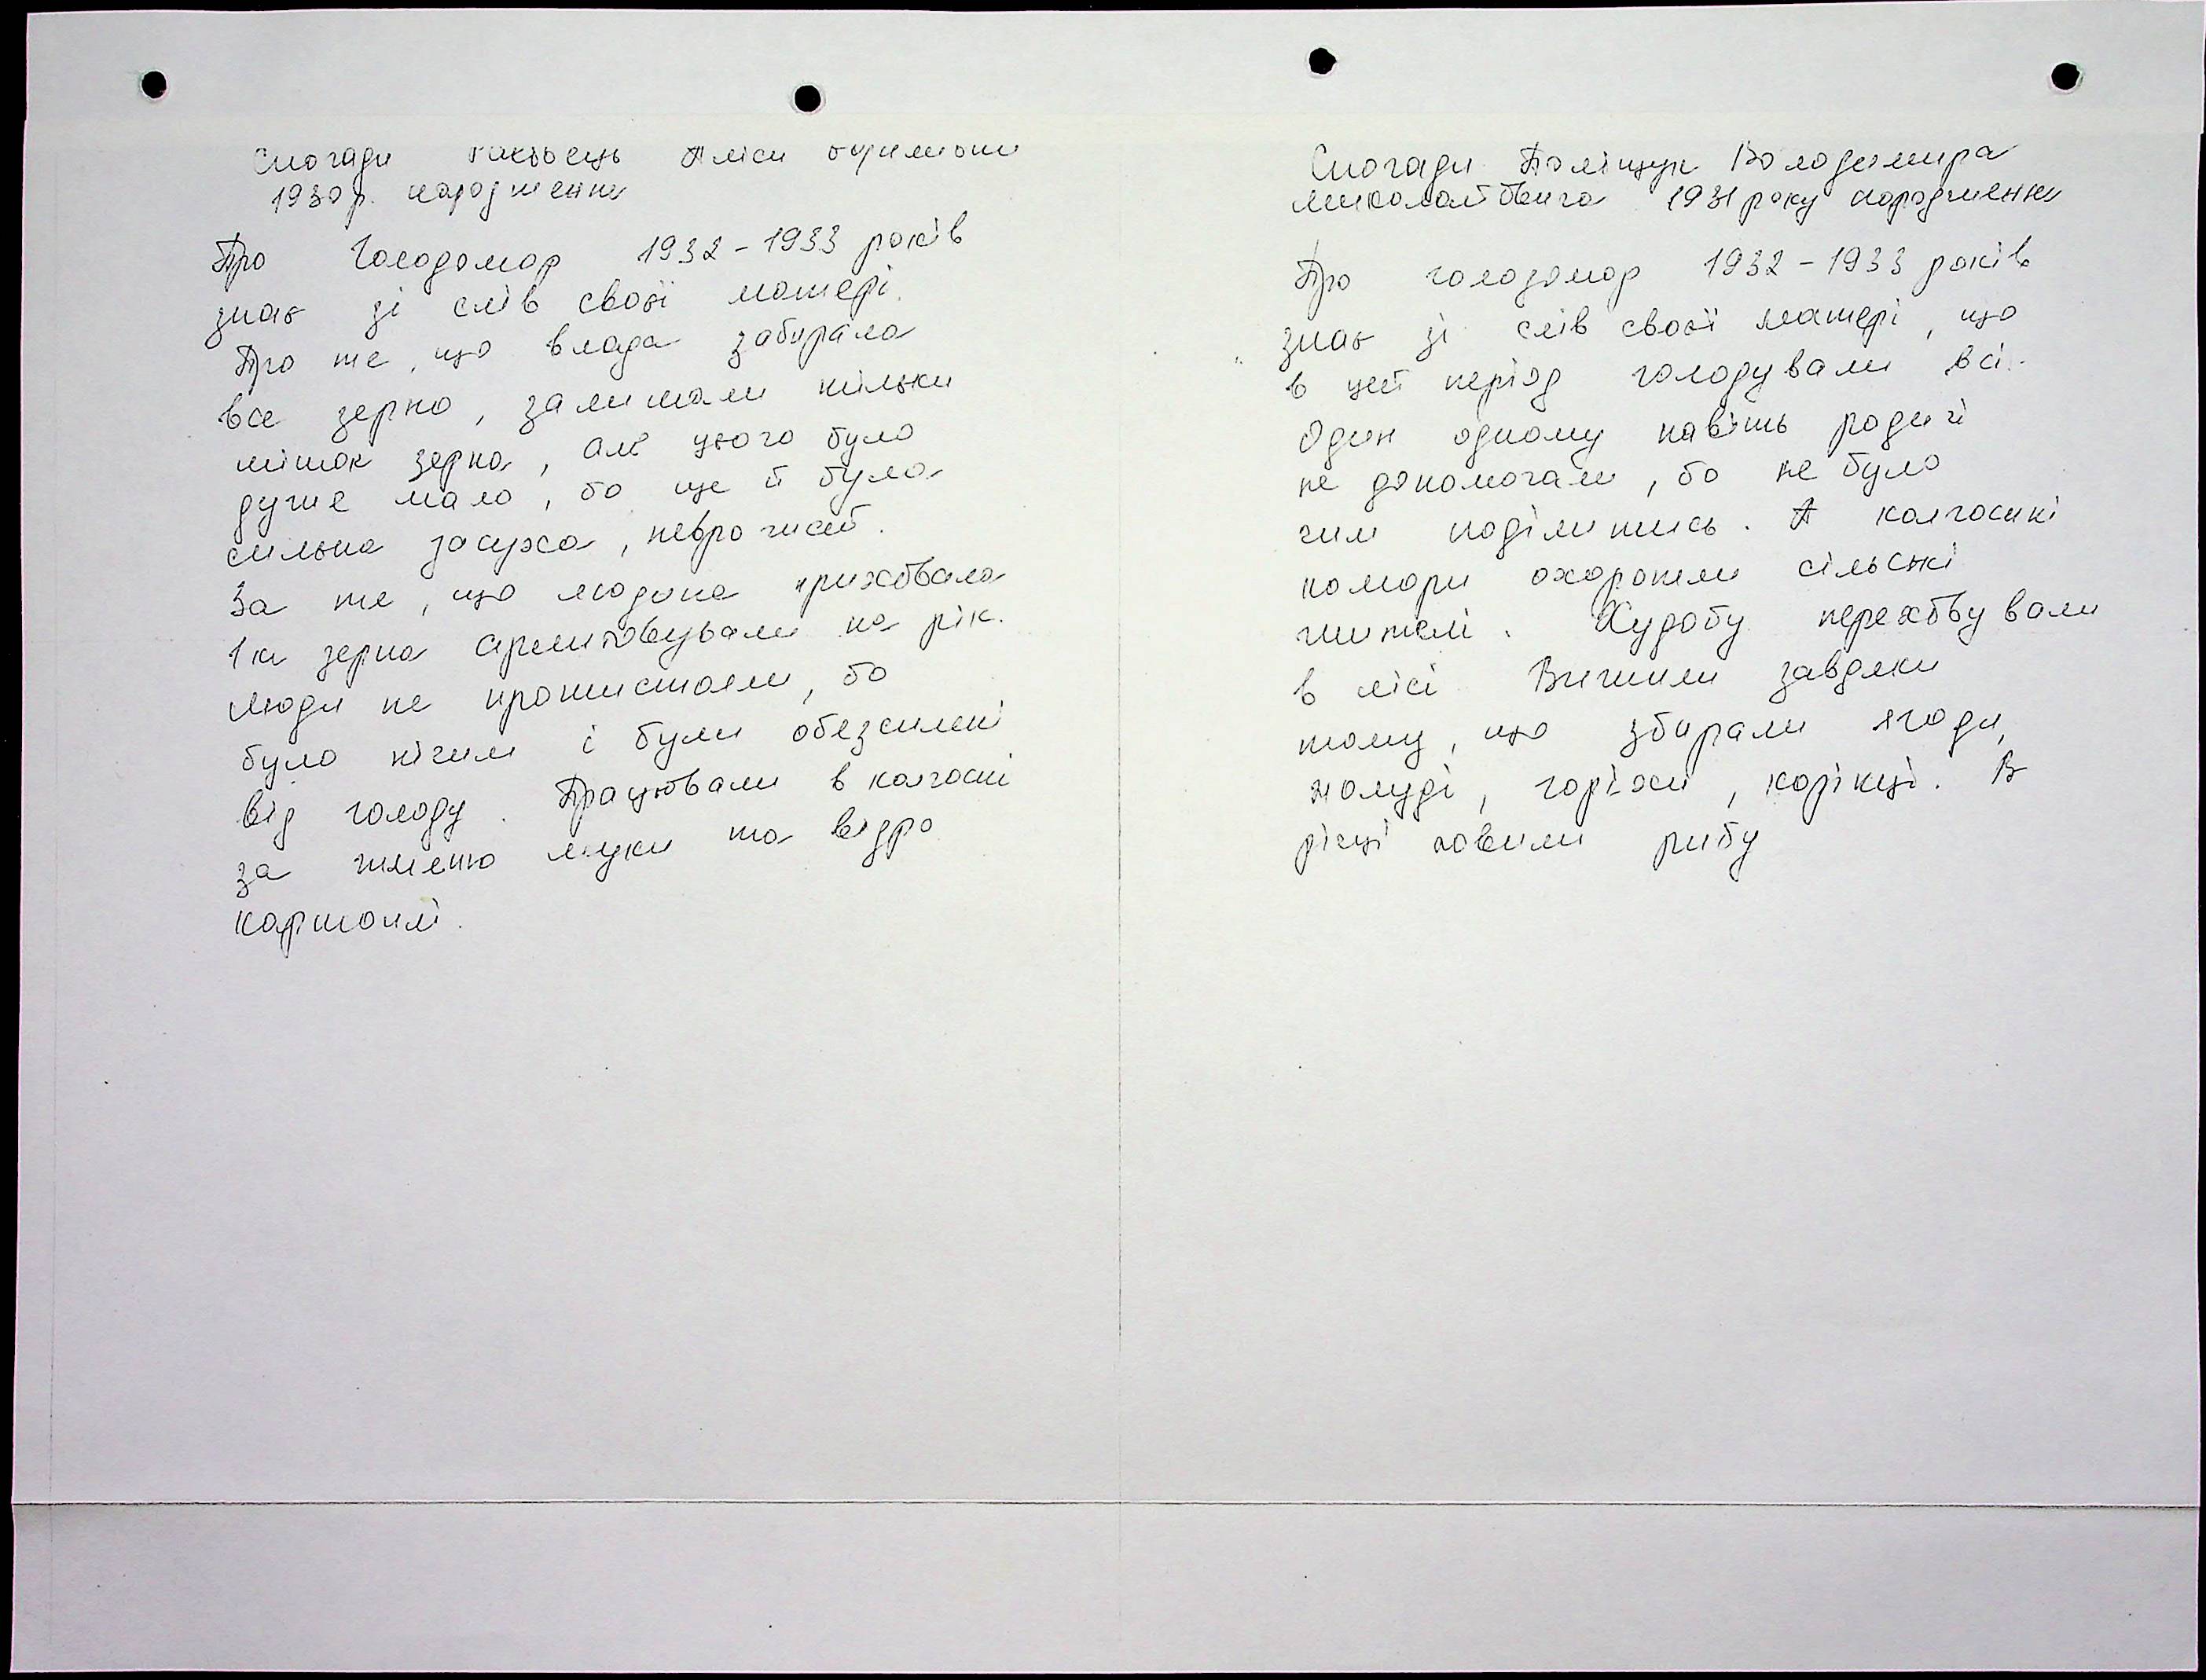 Спогади Аліси
1930р. народження
Про Голодомор 1932-1933 років
знає зі слів своєї матері.
Про те, що влада забирала
все зерно, залишали тільки
мішок зерна, але цього було
дуже мало, бо ще й була
сильна засуха, неврожай.
За те, що людина приховала
1 кг зерна арештовували на рік.
Люди не протистояли, бо
було нічим і були обезсилені
від голоду. Працювали в колгоспі
за жменю муки та відро
картоплі.
Спогади Поліщук Володимира
Миколайовича 1931 року народження
Про голодомор 1932-1933 років
знає зі слів своєї матері, що
в цей період голодували всі.
Один одному навіть родичі
не допомогали, бо не було
чим поділитись. А колгоспні
комори охороняли сільські
жителі. Худобу переховували
в лісі Вижили завдяки
тому, що збирали ягоди,
жолуді, горіхи, корінці. В
річці ловили рибу